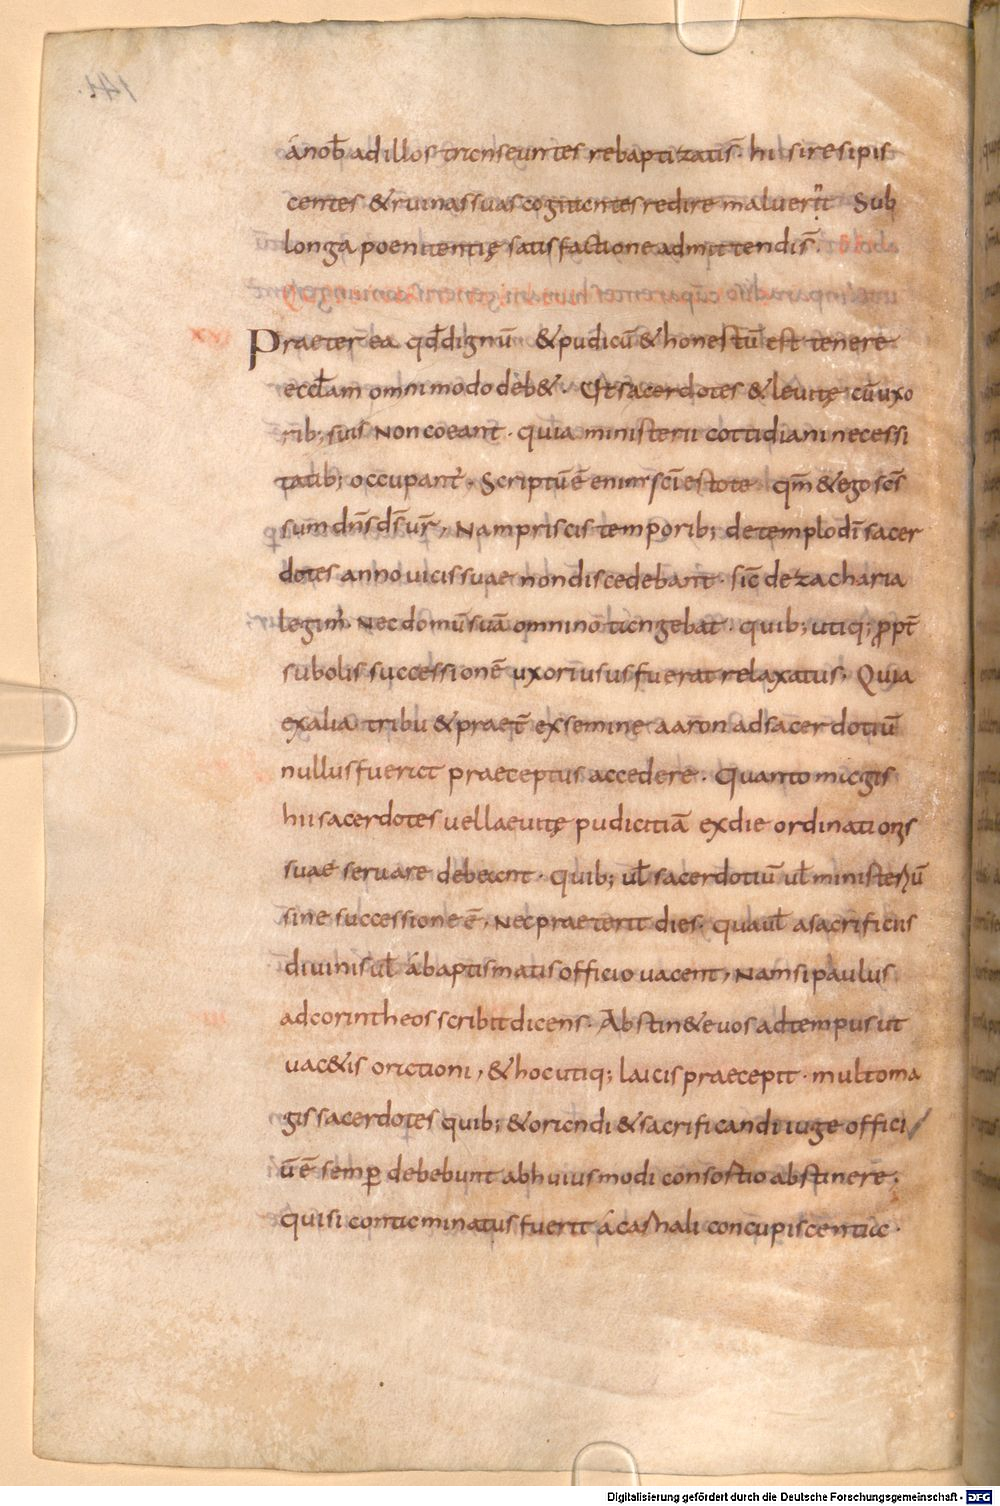 ánob̄ ad illos transeuntes rebaptizatis̄ · hi si resipis
centes & ruinas suas cogitantes redire maluerīt Sub
longa poenitentię satisfactione admittendis̄ .
xx
Praeterea qd̄ dignū & pudicū & honestū est tenere
eccl̄am omnimodo deb& · Ut sacerdotes & leuitę cū uxo
rib; suis Non coeant · quia ministerii cottidiani necessi
tatib; occupant᷑ . Scriptū ē enim sc̄i estote qm̄ & ego sc̄s
sum dn̄s ds̄ ur̄ , Nam priscis temporib; de templo dī sacer
dotes anno uicis suae non discedebant · sic̄ de zacharia
legim᷒ . Nec domū suā omnino tangebat · quib; utiq; ꝓpt̄
subolis successionē uxorius usus fuerat relaxatus . Quia
ex alia tribu & praet̄ ex semine aaron ad sacerdotiū
nullus fuerat praeceptus accedere . Quanto magis
hii sacerdotes uel laeuitę pudicitiā ex die ordinationis
suae seruare debeant · Quib; ul̄ sacerdotiū ul̄ ministeriū
sine successione ē , Nec praeterit dies · qua ul̄ a sacrificiis
diuinis ul̄ á baptismatis officio uacent , Nam si paulus
ad corintheos scribit dicens · Abstin& e uos ad tempus ut
uac&is orationi , & hoc utiq; laicis praecepit · multo ma
gis sacerdotes quib; & orandi & sacrificandi iuge offici
ū ē semꝑ debebunt ab huiusmodi consortio abstinere .
qui si contaminatus fuerit á carnali concupiscentia ·
Digitalisierung gefördert durch die Deutsche Forschungsgemeinschaft - DFG